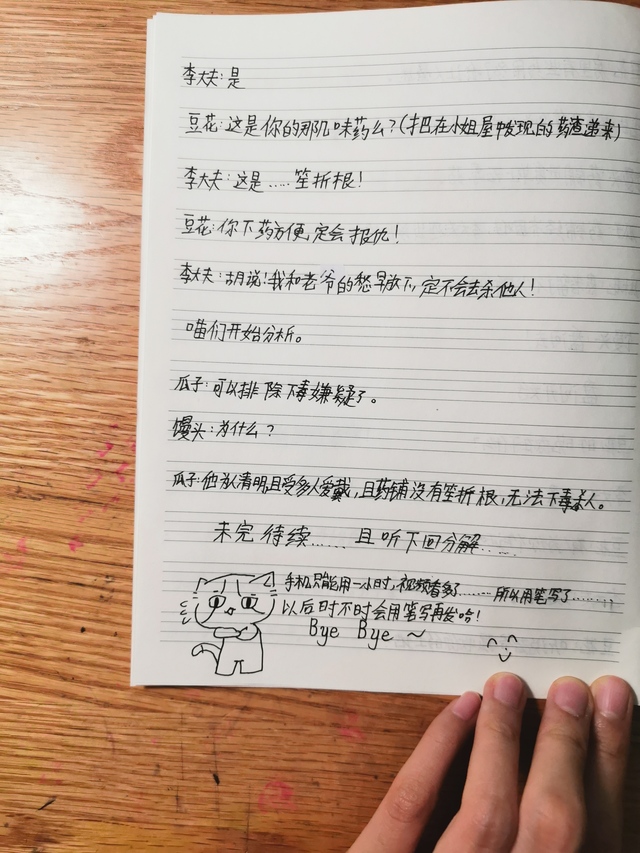 李大夫:是
豆花:这是你的那几味药么?(把在小姐屋中发现的药渣递来)
李大夫:这是……笙折根!
豆花:你下药方便,定会报仇!
李大夫:胡说!我和老爷的愁早放下,定不会去杀他人!
喵们开始分析。
瓜子:可以排除下毒嫌疑了。
馒头:为什么?
瓜子:他为人清明,且受多人爱戴,且药铺没有笙折根,无法下毒杀人。
未完待续……且听下回分解……
手机只能用一小时,视频看多了………所以用笔写了………
以后时不时会用笔写再发哈!
Bye Bye ~